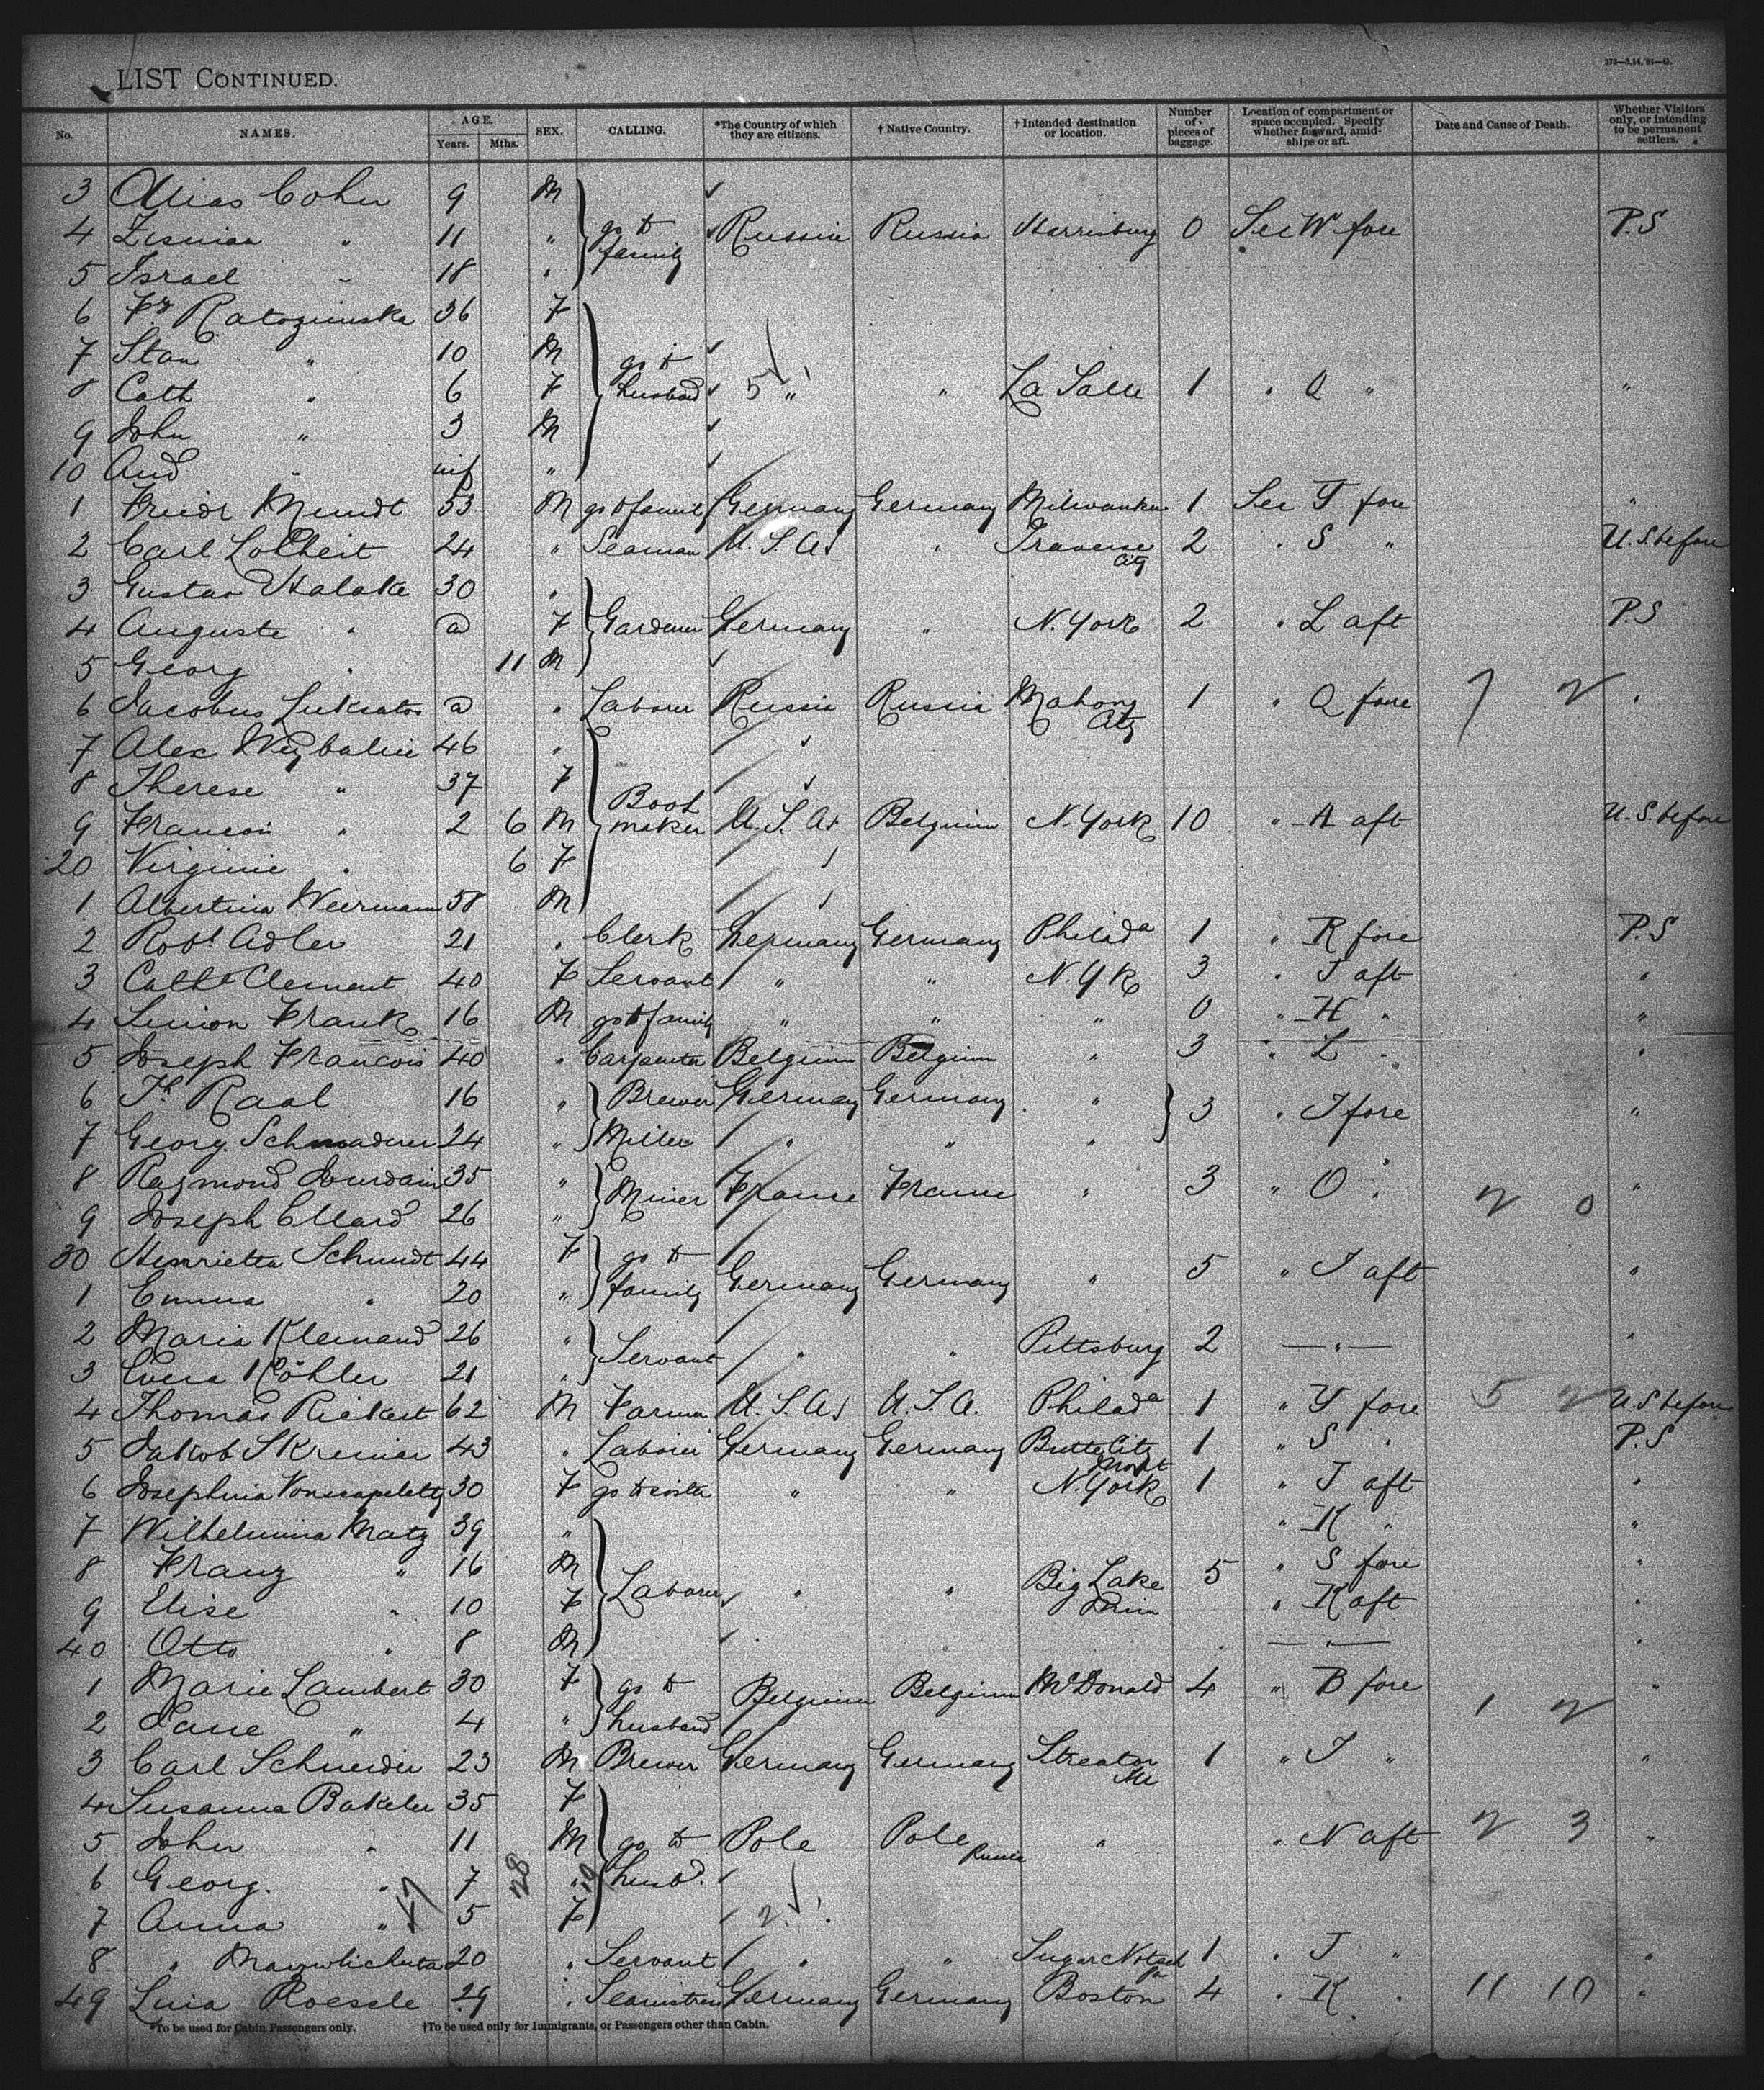 LIST CONTINUED.
No. NAMES. AGE. Years. Mths. SEX. CALLING. *The Country of which they are citizens. † Native Country. † Intended destination or location. Number of pieces of baggage. Location of compartment or space occupied. Specify whether forward, amidships or aft. Date and Cause of Death. Whether Visitors only, or intending to be permanent settlers.
3 Alias Cohn 9 M
4 " 11 " go to family Russia Russia Harrisburg 0 Sec W fore P.S
5 Israel " 18 "
6 Fr Ratozinska 36 F
7 Stan " 10 M
8 Cath " 6 F go to husband 5 " " La Salle 1 " Q " "
9 John " 3 M
10 And " inf "
1 Friedr Mundt 53 M go to family Germany Germany Milwaukee 1 Sec Y fore "
2 Carl 24 " Seaman U.S.A. " Traverse City 2 " S " U.S. before
3 Gustav 30 "
4 Auguste " a F Gardener Germany " N. York 2 " L aft P.S
5 Georg " 11 M
6 Jacobus a " Laborer Russia Russia Mahony City 1 " Q fore 7 2 "
7 Alex 46 "
8 Therese " 37 F
9 Francois " 2 6 M Boot maker U.S.A. Belgium N. York 10 " A aft U.S. before
20 Virginie " 6 F
1 Albertina Weermann 58 M
2 Robt Adler 21 " Clerk Germany Germany Philada 1 " R fore P.S
3 Cathe Clement 40 F Servant " " N. Yk 3 " J aft "
4 Frank 16 M go to family " " " 0 " H " "
5 Joseph Francois 40 " Carpenter Belgium Belgium " 3 " L " "
6 Raal 16 " Brewer Germany Germany " 3 " J fore "
7 Georg. Schmaderer 24 " Miller " " "
8 Raymond Jourdain 35 " Miner France France " 3 " O " "
9 Joseph Ellard 26 " 2 0
30 Henrietta Schmidt 44 F go to family Germany Germany " 5 " J aft "
1 Emma " 20 "
2 Maria Klemand 26 " Servant " " Pittsburg 2 — " — "
3 Köhler 21 "
4 Thomas Rickert 62 M Farmer U.S.A. U.S.A. Philada 1 " Y fore 5 2 U.S before
5 Jakob Skreiner 43 " Laborer Germany Germany Butte City Mont 1 " S " P.S
6 Josephina 30 F go to sister " " N. York 1 " J aft "
7 Wilhelmina Matz 39 " " K " "
8 Franz " 16 M Laborer " " Big Lake Min 5 " S fore "
9 Elise " 10 F " K aft "
40 Otto " 8 M — " — "
1 Marie Lambert 30 F go to husband Belgium Belgium McDonald 4 " B fore "
2 " 4 " 1 2
3 Carl Schneider 23 M Brewer Germany Germany Streator Ill 1 " J " "
4 Susanna Bakeler 35 F
5 John " 11 M go to husb. Pole Pole Russia " " N aft 2 3 "
6 Georg. " 7 "
7 Anna " 5 F 2
8 " 20 " Servant " " Sugar Notch Pa 1 " J " "
49 Roessle 29 " Seamstress Germany Germany Boston 4 " K " 11 10 "
47 28 19
*To be used for Cabin Passengers only. †To be used only for Immigrants, or Passengers other than Cabin.